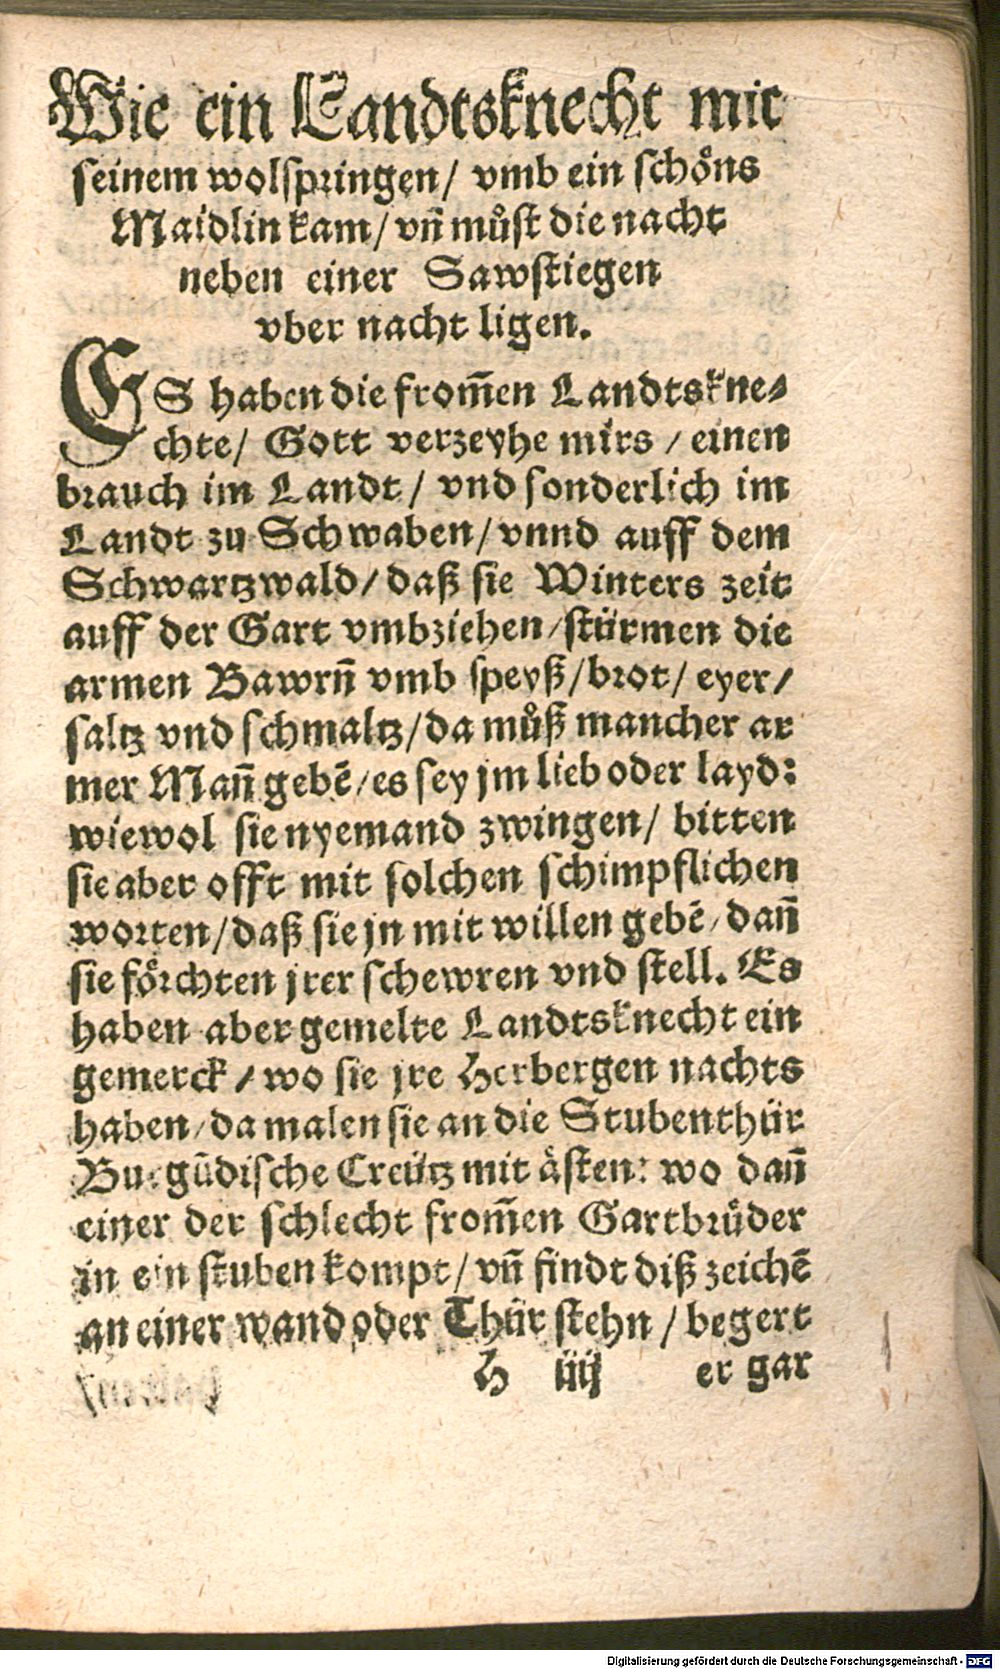 Wie ein Landtsknecht mit
seinem wolspringen/ vmb ein schoͤns
Maidlin kam/ vñ muͦst die nacht
neben einer Sawstiegen
vber nacht ligen.
ES haben die from̃en Landtskne⸗
chte/ Gott verzeyhe mirs / einen
brauch im Landt / vnd sonderlich im
Landt zu Schwaben/ vnnd auff dem
Schwartzwald/ daß sie Winters zeit
auff der Gart vmbziehen/ stürmen die
armen Bawrñ vmb speyß/ brot/ eyer/
saltz vnd schmaltz/ da muͦß mancher ar
mer Mañ gebẽ/ es sey jm lieb oder layd:
wiewol sie nyemand zwingen/ bitten
sie aber offt mit solchen schimpflichen
worten/ daß sie jn mit willen gebẽ/ dañ
sie foͤrchten jrer schewren vnd stell. Es
haben aber gemelte Landtsknecht ein
gemerck / wo sie jre Herbergen nachts
haben/ da malen sie an die Stubenthür
Burgũdische Creütz mit aͤsten: wo dañ
einer der schlecht from̃en Gartbruͤder
in ein stuben kompt/ vñ findt diß zeichẽ
an einer wand oder Thür stehn / begert
H iiij er gar
Digitalisierung gefördert durch die Deutsche Forschungsgemeinschaft - DFG